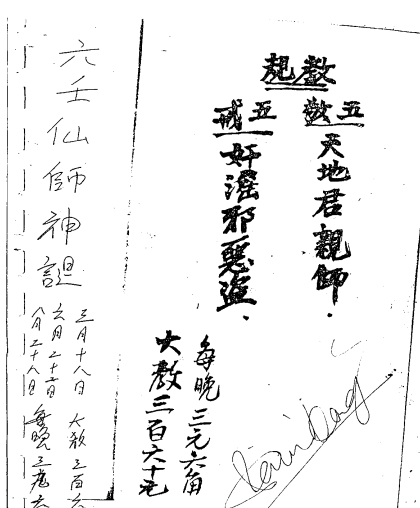 教規
五教
天地君親師.
五戒
奸淫邪惡盜.
每晚三元六角
大教三百六十元
六壬仙師神誕
三月十八日 大教三百六
六月二十
八月二十八日 每晚三元六